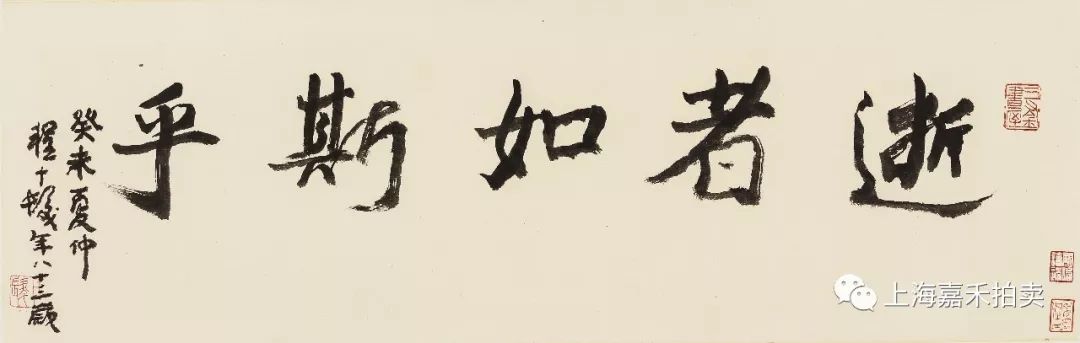 逝者如斯乎
癸未夏仲
程十髮年八十三歲
上海嘉禾拍卖